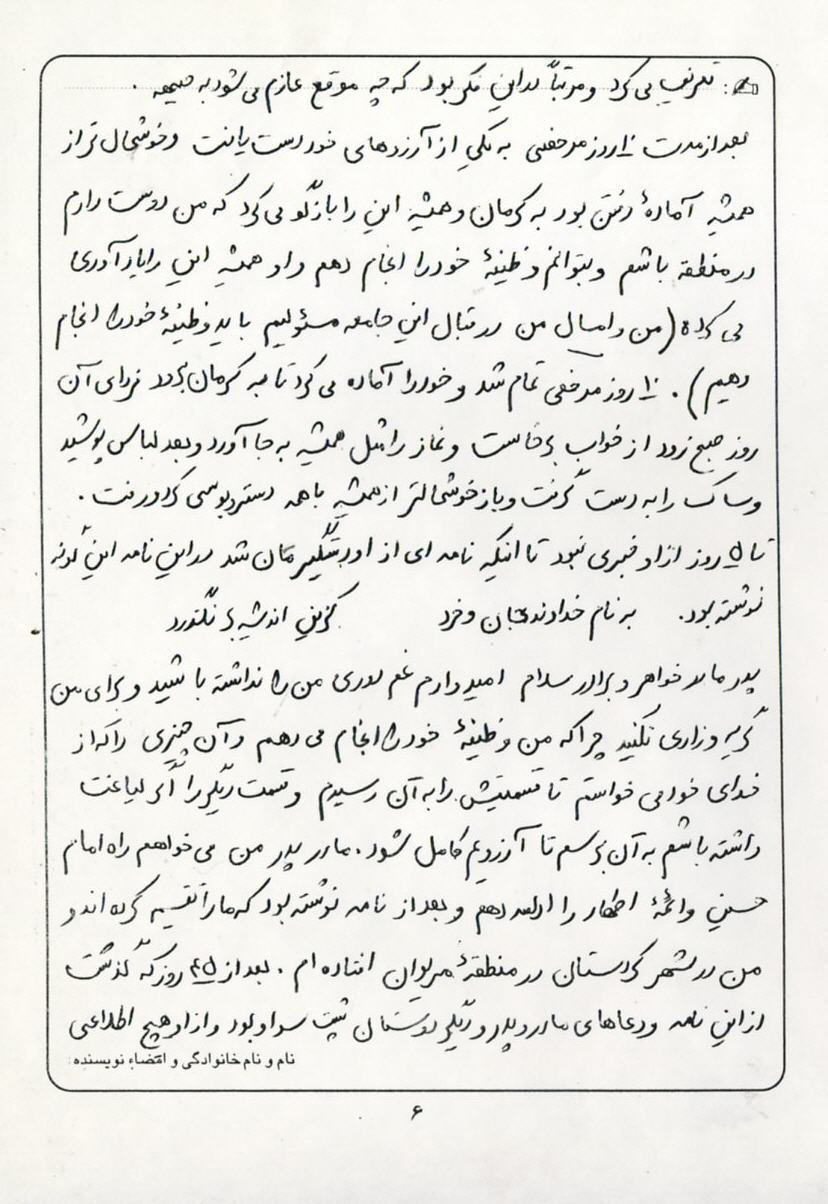 تعریف می کرد و مرتباً در این فکر بود که چه موقع عازم می شود به جبهه .
بعد از مدت ۱۰ روز مرخصی به یکی از آرزوهای خود دست یافت و خوشحال تر از
همیشه آمادهٔ رفتن بود به کرمان و همیشه این را بازگو می کرد که من دوست دارم
در منطقه باشم و بتوانم وظیفهٔ خود را انجام دهم و او همیشه این را یادآوری
می کرد (من و امسال من در قبال این جامعه مسئولیم باید وظیفهٔ خود را انجام
دهیم) . ۱۰ روز مرخصی تمام شد و خود را آماده می کرد تا به کرمان برود فردای آن
روز صبح زود از خواب برخاست و نماز را مثل همیشه به جا آورد و بعد لباس پوشید
و ساک را به دست گرفت و باز خوشحالتر از همیشه با همه دست و بوسی کرد و رفت .
تا ۱۵ روز از او خبری نبود تا اینکه نامه ای از او دستگیرمان شد در این نامه این گونه
نوشته بود. به نام خداوند جان و خرد کزین اندیشه بر نگذرد
پدر مادر خواهر و برادر سلام امیدوارم غم دوری من را نداشته باشید و برای من
گریه و زاری نکنید چرا که من وظیفهٔ خود را انجام می دهم و آن چیزی را که از
خدای خود می خواستم تا قسمتیش را به آن رسیدم و قسمت دیگر را اگر لیاقت
داشته باشم به آن برسم تا آرزویم کامل شود . مادر پدر من می خواهم راه امام
حسین و ائمهٔ اطهار را ادامه دهم و بعد از نامه نوشته بود که ما را تقسیم کرده اند و
من در شهر کردستان در منطقهٔ مریوان افتاده ام . بعد از ۴۵ روز که گذشت
از این نامه و دعاهای مادر و پدر و دیگر دوستان پشت سر او بود و از او هیچ اطلاعی
نام و نام خانوادگی و امضاء نویسنده:
۶